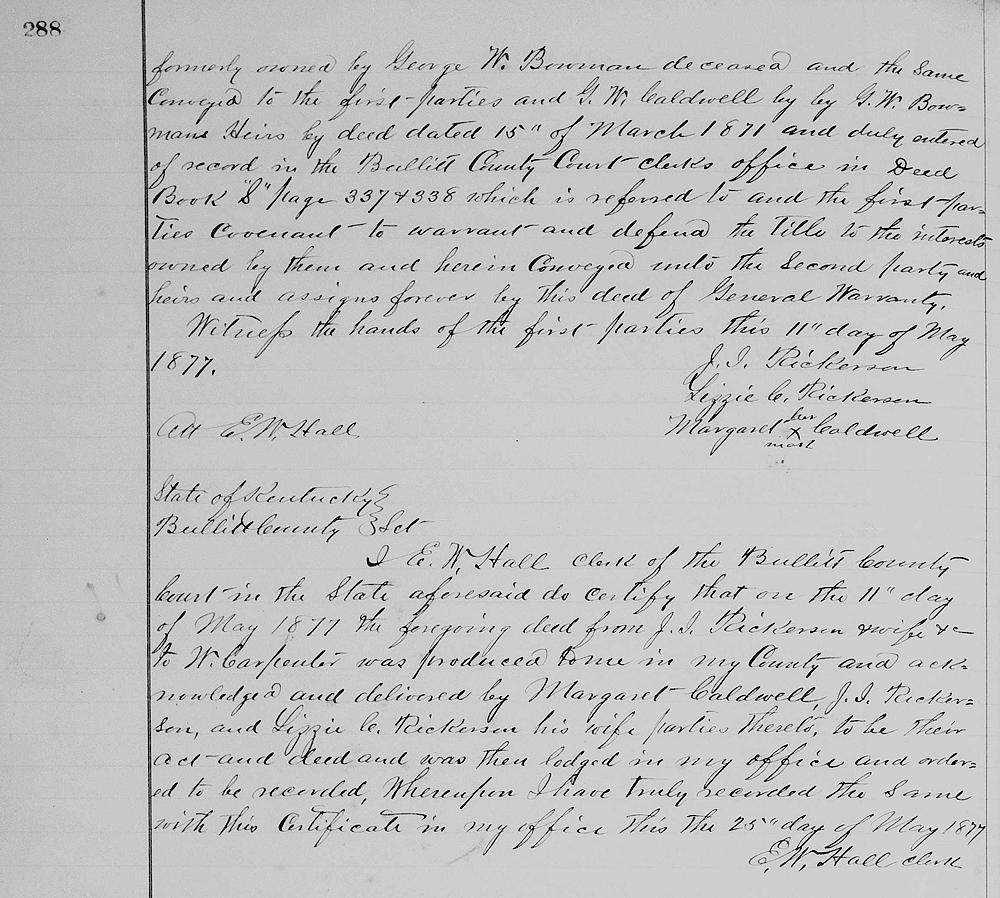 288
formerly owned by George W. Bowman deceased and the Same
Conveyed to the first parties and G. W. Caldwell by by G. W. Bow=
mans Heirs by deed dated 15" of March 1871 and duly entered
of record in the Bullitt County Court clerks office in Deed
Book "S" page 337 & 338 which is referred to and the first par=
ties Covenant to warrant and defend the title to the interests
owned by them and herein Conveyed unto the Second party and
heirs and assigns forever by this deed of General Warranty.
Witness the hands of the first parties this 11" day of May
1877.
J. I. Rickerson
Lizzie C. Rickerson
Att E. W. Hall
Margaret her x mark Caldwell
State of Kentucky }
Bullitt County } Sct
I E. W. Hall clerk of the Bullitt County
Court in the State aforesaid do certify that on the 11" day
of May 1877 the foregoing deed from J. I. Rickerson & wife &c
to W. Carpenter was produced to me in my County and ack=
nowledged and delivered by Margaret Caldwell, J. I. Ricker=
son, and Lizzie C. Rickerson his wife parties thereto, to be their
act and deed and was then lodged in my office and order=
ed to be recorded, Whereupon I have truly recorded the Same
with this Certificate in my office this the 25" day of May 1877
E. W. Hall clerk